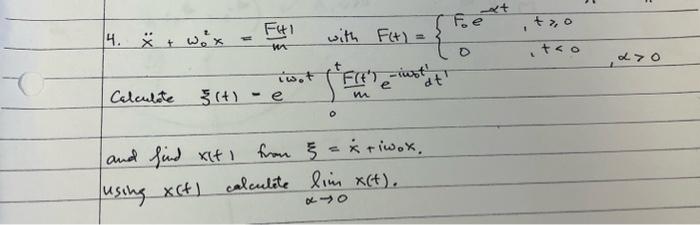 4. ẍ + ω₀²x = F(t)/m with F(t) = { F₀e^(-αt) , t ≥ 0
0 , t < 0 , α > 0
Calculate ξ(t) - e^(iω₀t) ∫₀^t F(t')/m e^(-iω₀t') dt'
and find x(t) from ξ = ẋ + iω₀x.
using x(t) calculate lim α→0 x(t).